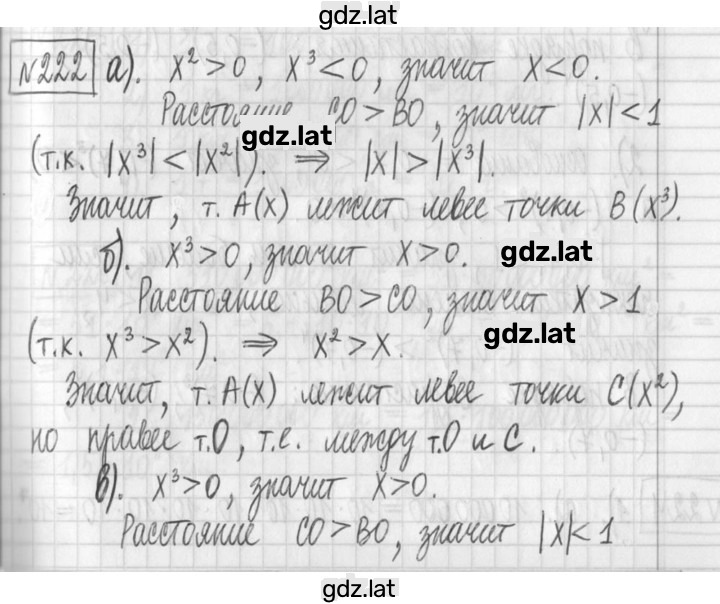 gdz.lat
№222 а). x²>0, x³<0, значит x<0.
Расстояние CO>BO, значит |x|<1
gdz.lat
(т.к. |x³|<|x²|). ⇒ |x|>|x³|.
Значит, т. A(x) лежит левее точки B(x³).
б). x³>0, значит x>0. gdz.lat
Расстояние BO>CO, значит x>1
gdz.lat
(т.к. x³>x²). ⇒ x²>x.
Значит, т. A(x) лежит левее точки C(x²),
но правее т.O, т.е. между т.O и C.
в). x³>0, значит x>0.
Расстояние CO>BO, значит |x|<1
gdz.lat